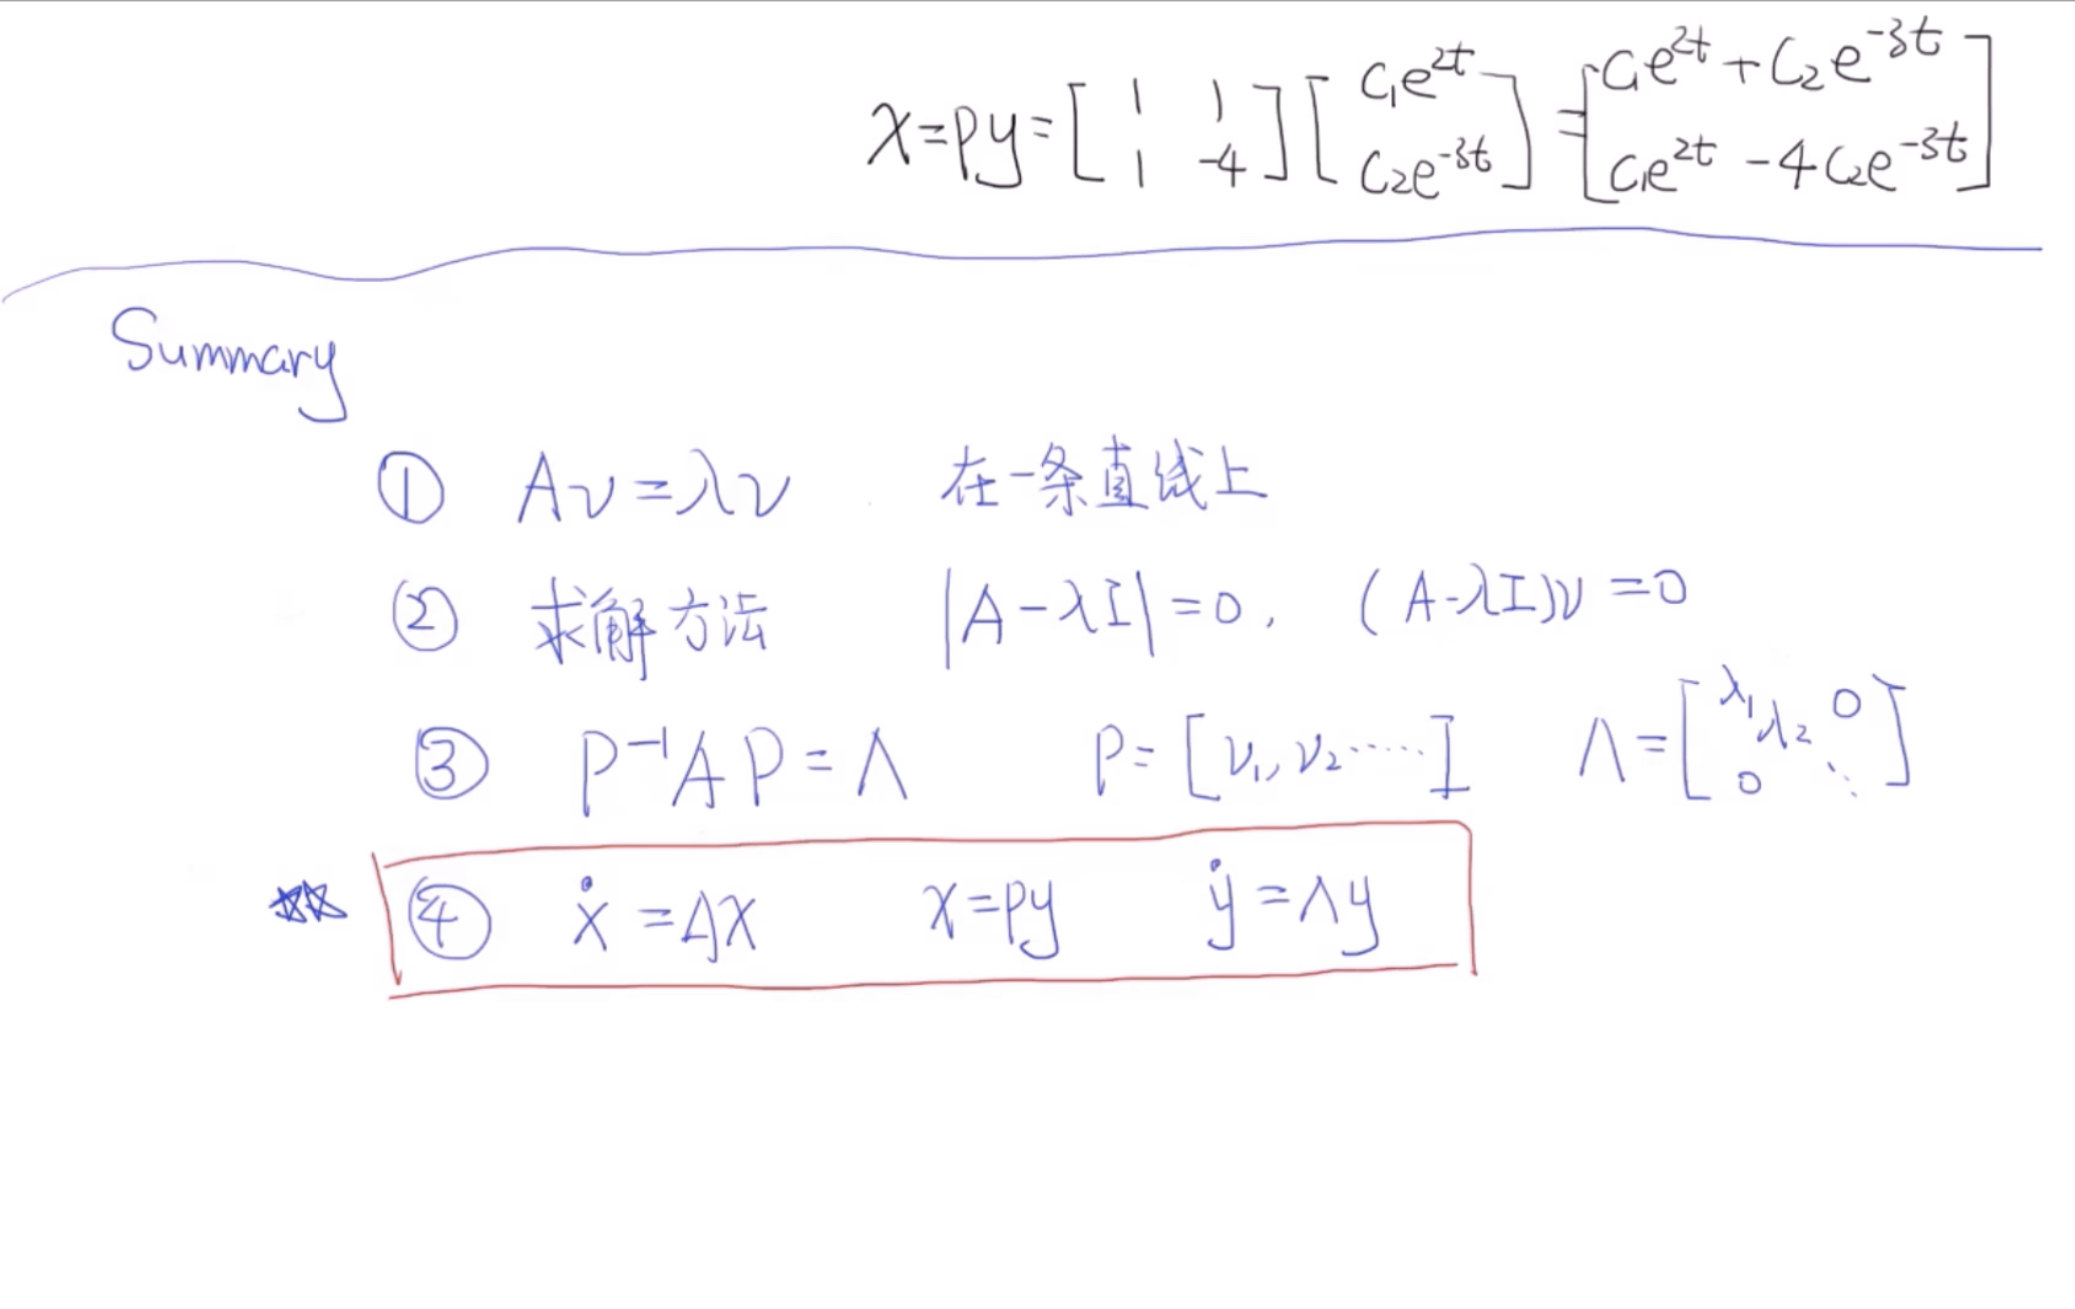 x=py=[1 1; 1 -4][C₁e^{2t}; C₂e^{-3t}]=[C₁e^{2t}+C₂e^{-3t}; C₁e^{2t}-4C₂e^{-3t}]
Summary
① Aν=λν 在一条直线上
② 求解方法 |A-λI|=0, (A-λI)ν=0
③ P⁻¹AP=Λ P=[ν₁, ν₂……] Λ=[λ₁ λ₂ 0 0 ⋱]
④ ẋ=Ax x=py ẏ=Λy